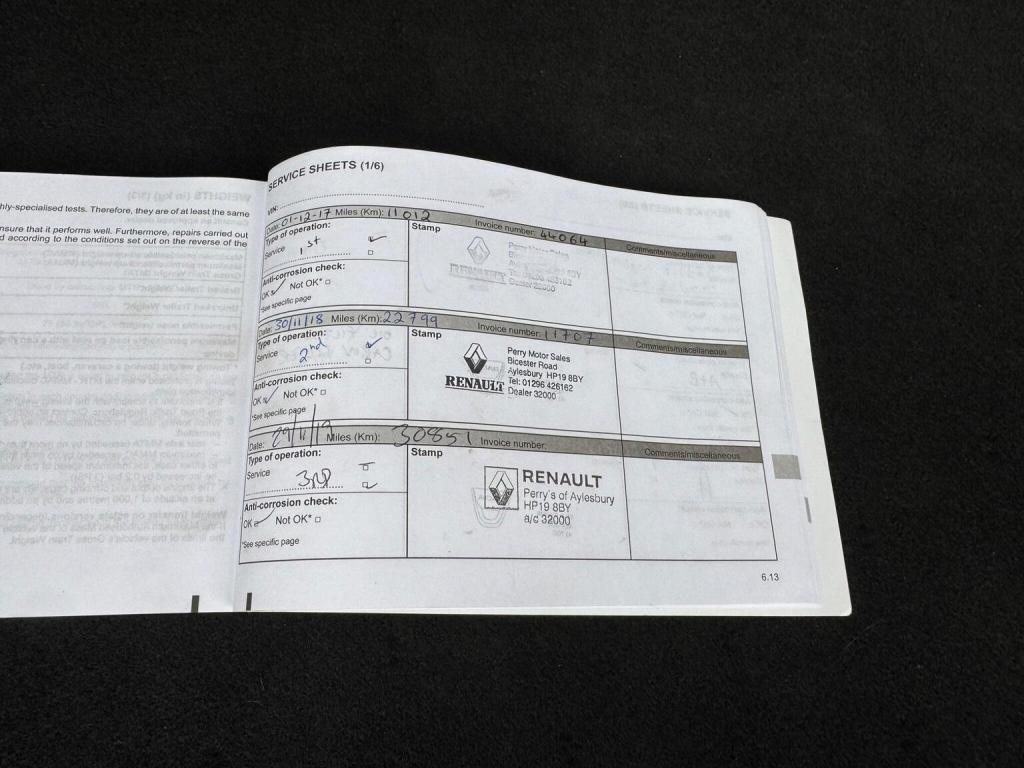 hly-specialised tests. Therefore, they are of at least the same
nsure that it performs well. Furthermore, repairs carried out
d according to the conditions set out on the reverse of the
SERVICE SHEETS (1/6)
VIN:
Date: 01-12-17 Miles (Km): 11012 Invoice number: 44064 Comments/miscellaneous
Type of operation:
Service 1st
Anti-corrosion check:
OK Not OK*
*See specific page
Stamp
RENAULT
Perry Motor Sales
Bicester Road
Dealer 32000
Date: 30/11/18 Miles (Km): 22799 Invoice number: 11707 Comments/miscellaneous
Type of operation:
Service 2nd
Anti-corrosion check:
OK Not OK*
*See specific page
Stamp
RENAULT
Perry Motor Sales
Bicester Road
Aylesbury HP19 8BY
Tel: 01296 426162
Dealer 32000
Date: 29/11/19 Miles (Km): 30851 Invoice number: Comments/miscellaneous
Type of operation:
Service 3RD
Anti-corrosion check:
OK Not OK*
*See specific page
Stamp
RENAULT
Perry's of Aylesbury
HP19 8BY
a/c 32000
6.13